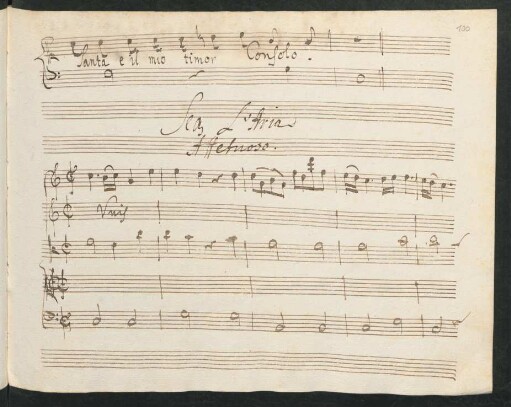 130
Santa e il mio timor Consolo.
Seg. L'Aria
Affetuoso.
Unis